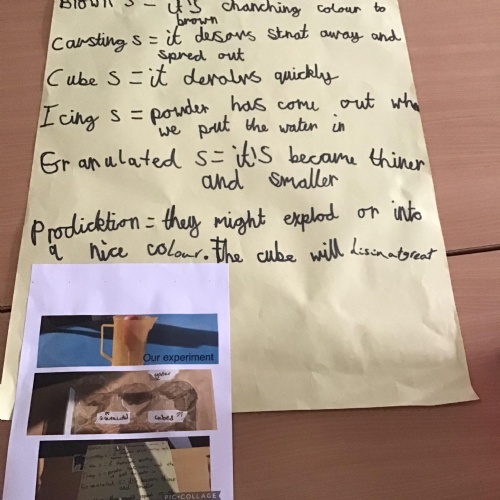 Blown s = it's chanching colour to
brown
Carsting s = it desovs strat away and
spred out
Cube s = it devolvs quickly
Icing s = powder has come out whe
we put the water in
Granulated s = it's became thiner
and smaller
Prodicktion = they might explod or into
a nice colour. The cube will disinatgreat
Our experiment
water
cubes
PIC•COLLAGE